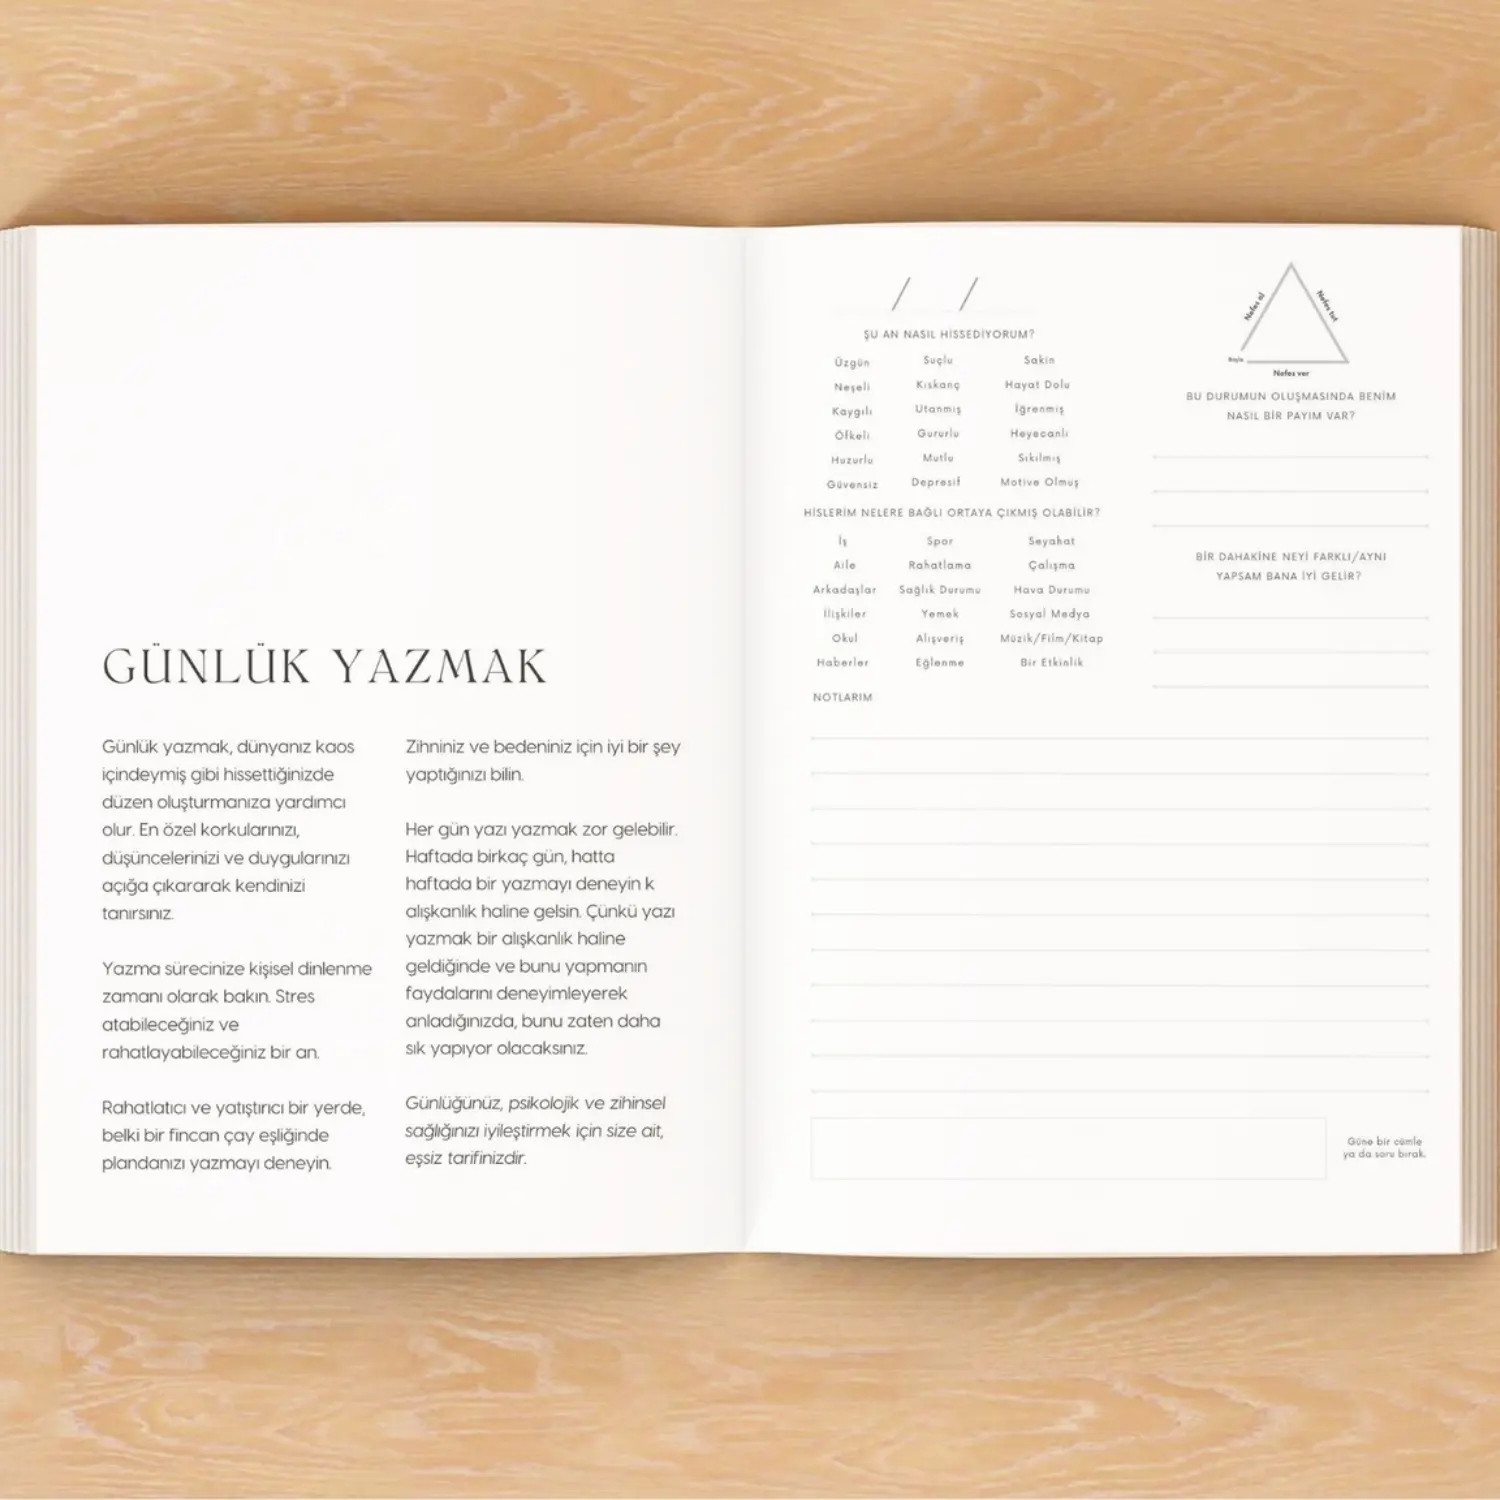 GÜNLÜK YAZMAK
Günlük yazmak, dünyanız kaos
içindeymiş gibi hissettiğinizde
düzen oluşturmanıza yardımcı
olur. En özel korkularınızı,
düşüncelerinizi ve duygularınızı
açığa çıkararak kendinizi
tanırsınız.
Yazma sürecinize kişisel dinlenme
zamanı olarak bakın. Stres
atabileceğiniz ve
rahatlayabileceğiniz bir an.
Rahatlatıcı ve yatıştırıcı bir yerde,
belki bir fincan çay eşliğinde
plandanızı yazmayı deneyin.
Zihniniz ve bedeniniz için iyi bir şey
yaptığınızı bilin.
Her gün yazı yazmak zor gelebilir.
Haftada birkaç gün, hatta
haftada bir yazmayı deneyin k
alışkanlık haline gelsin. Çünkü yazı
yazmak bir alışkanlık haline
geldiğinde ve bunu yapmanın
faydalarını deneyimleyerek
anladığınızda, bunu zaten daha
sık yapıyor olacaksınız.
Günlüğünüz, psikolojik ve zihinsel
sağlığınızı iyileştirmek için size ait,
eşsiz tarifinizdir.
/ /
ŞU AN NASIL HİSSEDİYORUM?
Üzgün Suçlu Sakin
Neşeli Kıskanç Hayat Dolu
Kaygılı Utanmış İğrenmiş
Öfkeli Gururlu Heyecanlı
Huzurlu Mutlu Sıkılmış
Güvensiz Depresif Motive Olmuş
HİSLERİM NELERE BAĞLI ORTAYA ÇIKMIŞ OLABİLİR?
İş Spor Seyahat
Aile Rahatlama Çalışma
Arkadaşlar Sağlık Durumu Hava Durumu
İlişkiler Yemek Sosyal Medya
Okul Alışveriş Müzik/Film/Kitap
Haberler Eğlenme Bir Etkinlik
NOTLARIM
Nefes al
Nefes tut
Başla
Nefes ver
BU DURUMUN OLUŞMASINDA BENİM
NASIL BİR PAYIM VAR?
BİR DAHAKİNE NEYİ FARKLI/AYNI
YAPSAM BANA İYİ GELİR?
Güne bir cümle
ya da soru bırak.